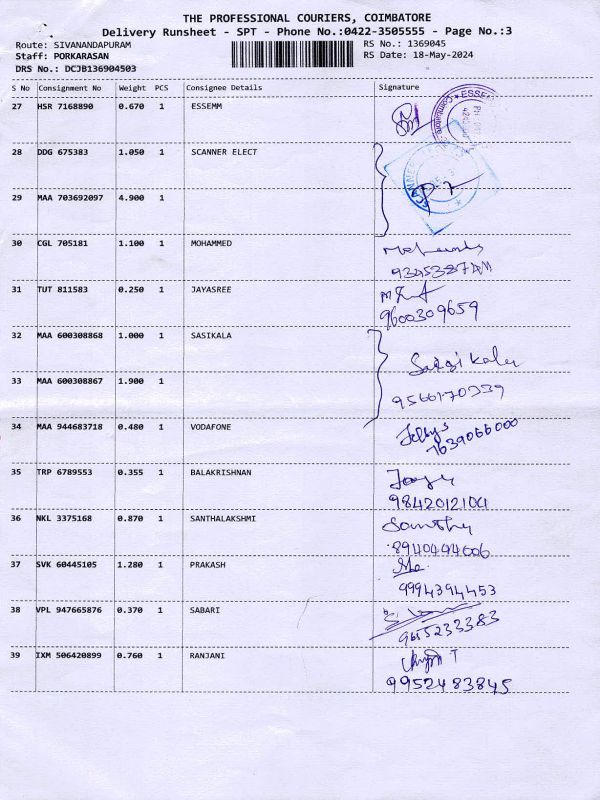 THE PROFESSIONAL COURIERS, COIMBATORE
Delivery Runsheet - SPT - Phone No.:0422-3505555 - Page No.:3
Route: SIVANANDAPURAM RS No.: 1369045
Staff: PORKARASAN RS Date: 18-May-2024
DRS No.: DCJB136904503
S No Consignment No Weight PCS Consignee Details Signature
27 HSR 7168890 0.670 1 ESSEMM
28 DDG 675383 1.050 1 SCANNER ELECT
29 MAA 703692097 4.900 1
30 CGL 705181 1.100 1 MOHAMMED
31 TUT 811583 0.250 1 JAYASREE
9600309659
32 MAA 600308868 1.000 1 SASIKALA
Sasikala
33 MAA 600308867 1.900 1
34 MAA 944683718 0.480 1 VODAFONE
7639066000
35 TRP 6789553 0.355 1 BALAKRISHNAN
9842012101
36 NKL 3375168 0.870 1 SANTHALAKSHMI
Santhy
8940444606
37 SVK 60445105 1.280 1 PRAKASH
9994394453
38 VPL 947665876 0.370 1 SABARI
9655233383
39 IXM 506420899 0.760 1 RANJANI
9952483845